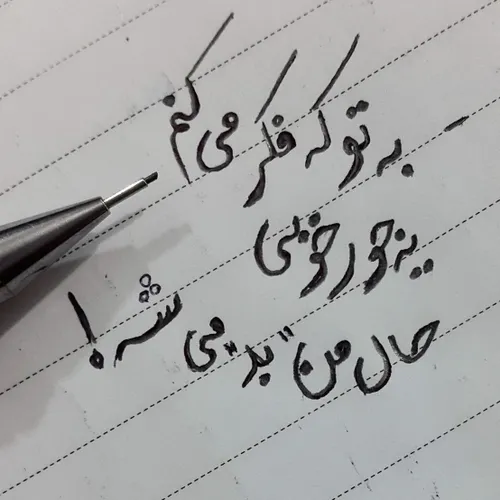 - به تو که فکر می کنم
یه جور خوبی
حال من "بد" می شه!